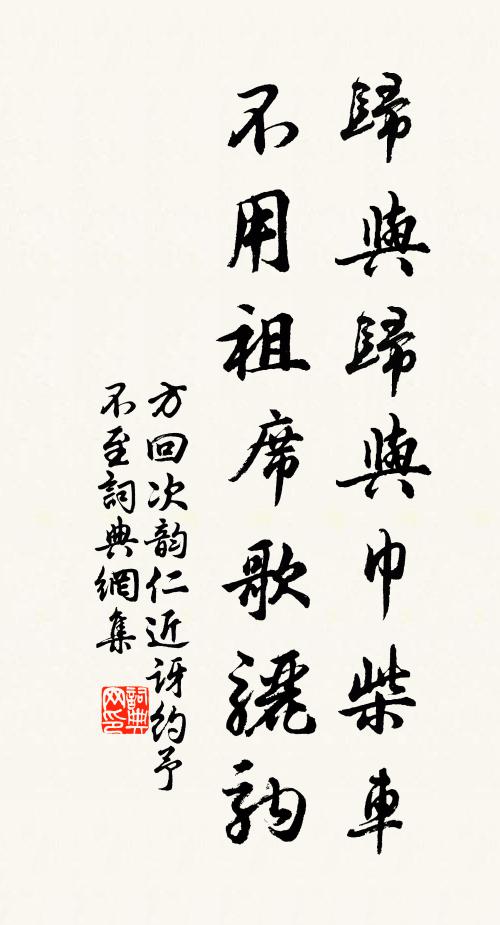 歸與歸與巾柴車
不用祖席歌驪駒
方回次韵仁近訝約予
不至詞典網集
詞典
网印